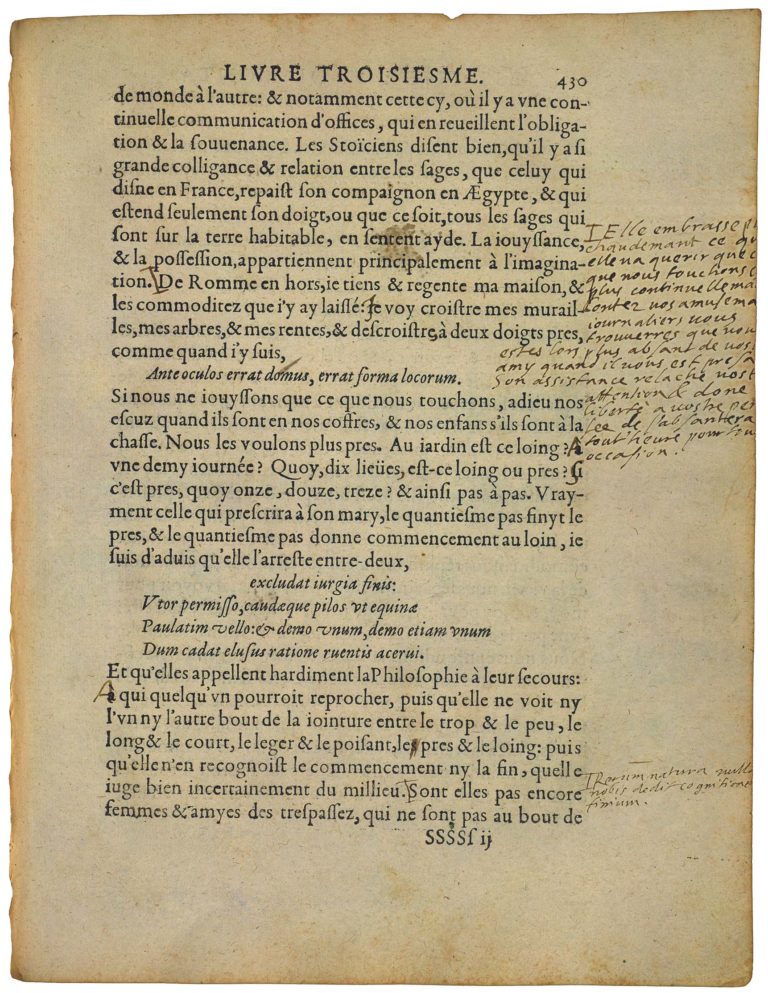 LIVRE TROISIESME. 430
de monde à l'autre: & notamment cette cy, où il y a vne con-
tinuelle communication d'offices, qui en reueillent l'obliga-
tion & la souuenance. Les Stoïciens disent bien, qu'il y a si
grande colligance & relation entre les sages, que celuy qui
disne en France, repaist son compaignon en Ægypte, & qui
estend seulement son doigt, ou que ce soit, tous les sages qui
sont sur la terre habitable, en sentent ayde. La iouyssance,
& la possession, appartiennent principalement à l'imagina-
tion. De Romme en hors, ie tiens & regente ma maison, &
les commoditez que i'y ay laissé: Ie voy croistre mes murail-
les, mes arbres, & mes rentes, & descroistre, à deux doigts pres,
comme quand i'y suis,
Ante oculos errat domus, errat forma locorum.
Si nous ne iouyssons que ce que nous touchons, adieu nos
escuz quand ils sont en nos coffres, & nos enfans s'ils sont à la
chasse. Nous les voulons plus pres. Au iardin est ce loing? A
vne demy iournée? Quoy, dix lieües, est-ce loing ou pres? Si
c'est pres, quoy onze, douze, treze? & ainsi pas à pas. Vray-
ment celle qui prescrira à son mary, le quantiesme pas finyt le
pres, & le quantiesme pas donne commencement au loin, ie
suis d'aduis qu'elle l'arreste entre-deux,
excludat iurgia finis:
Vtor permisso, caudæque pilos vt equinæ
Paulatim vello: & demo vnum, demo etiam vnum
Dum cadat elusus ratione ruentis acerui.
Et qu'elles appellent hardiment la Philosophie à leur secours:
A qui quelqu'vn pourroit reprocher, puis qu'elle ne voit ny
l'vn ny l'autre bout de la iointure entre le trop & le peu, le
long & le court, le leger & le poisant, le pres & le loing: puis
qu'elle n'en recognoist le commencement ny la fin, qu'elle
iuge bien incertainement du millieu. Sont elles pas encore
femmes & amyes des trespassez, qui ne sont pas au bout de
SSSSs ij
Elle embrasse
chaudemant ce
elle va querir que
que nous touchons
plus continuellema
contez vos amusema
iournaliers vous
trouverres que vou
estes lors plus absant de vos
amy quand il vous est presa
Son assistance relache vost
attention & done
liberte a vostre pe
see de s'absanter a
tout'heure pour tou
occasion.
Rerum natura null
nobis dedit cognitione
finium.